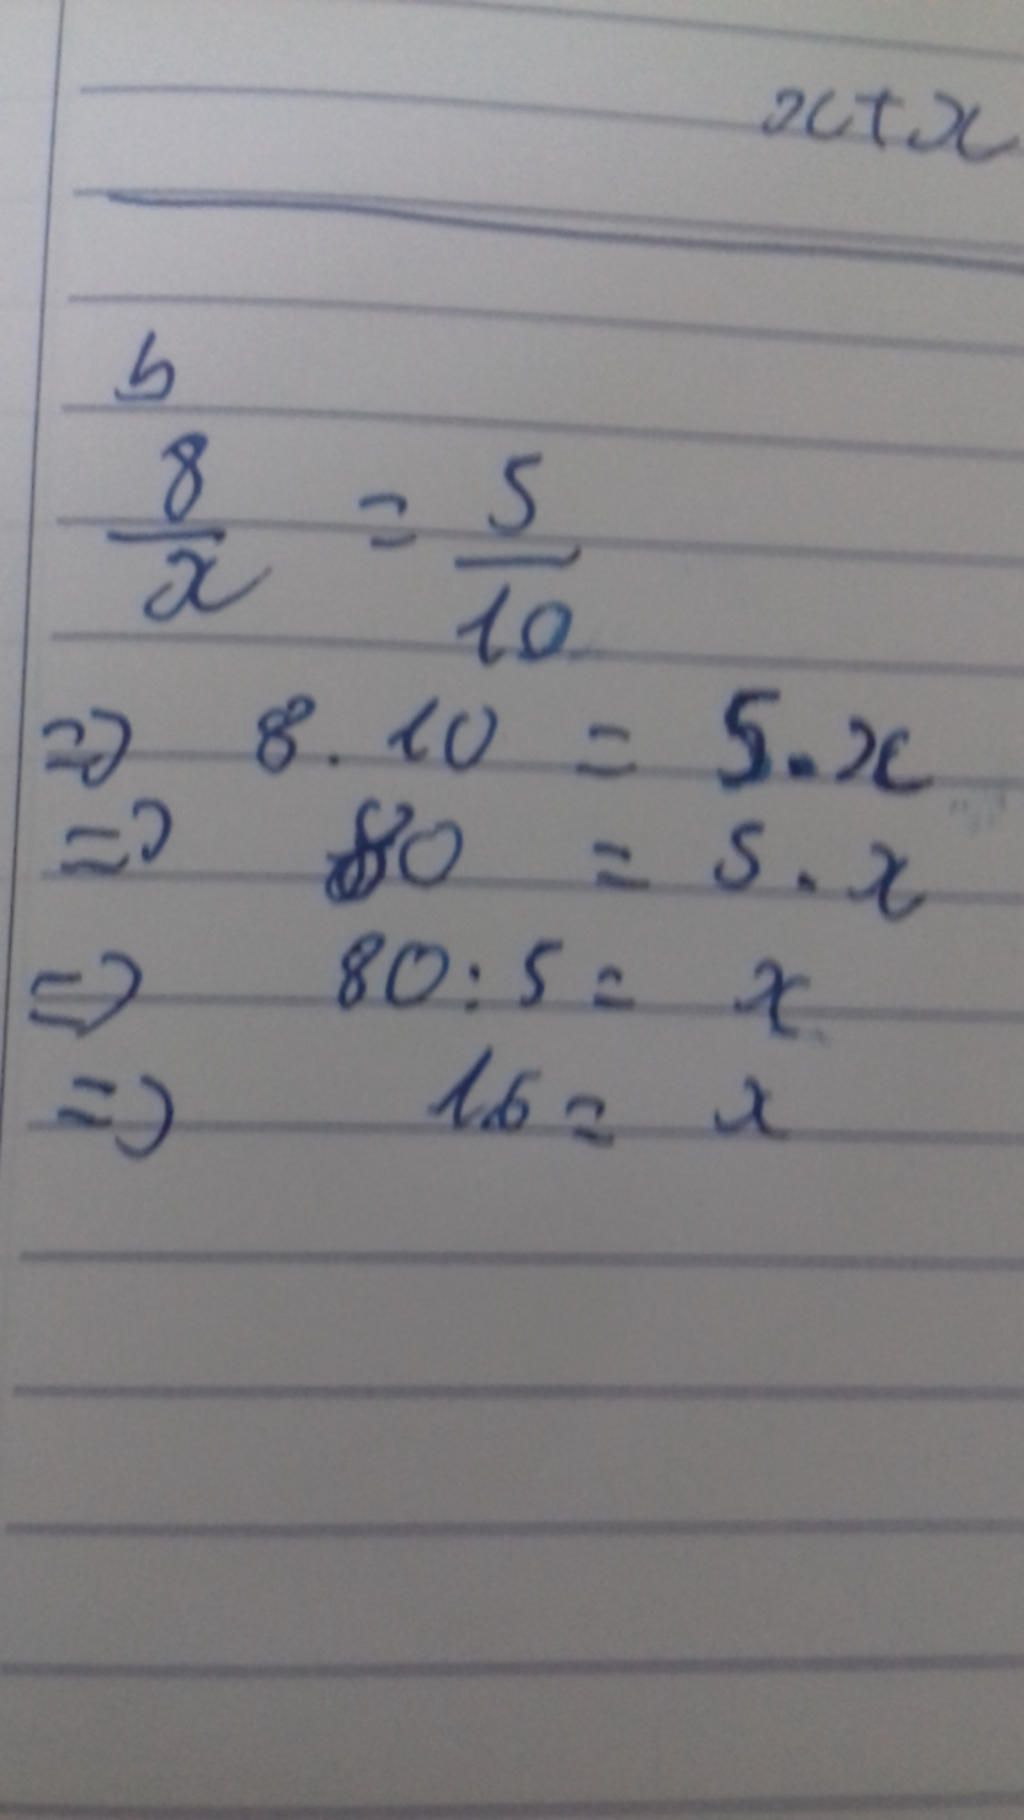 x+x
b
8/x = 5/10
=> 8. 10 = 5.x
=> 80 = 5.x
=> 80:5 = x
=> 16 = x